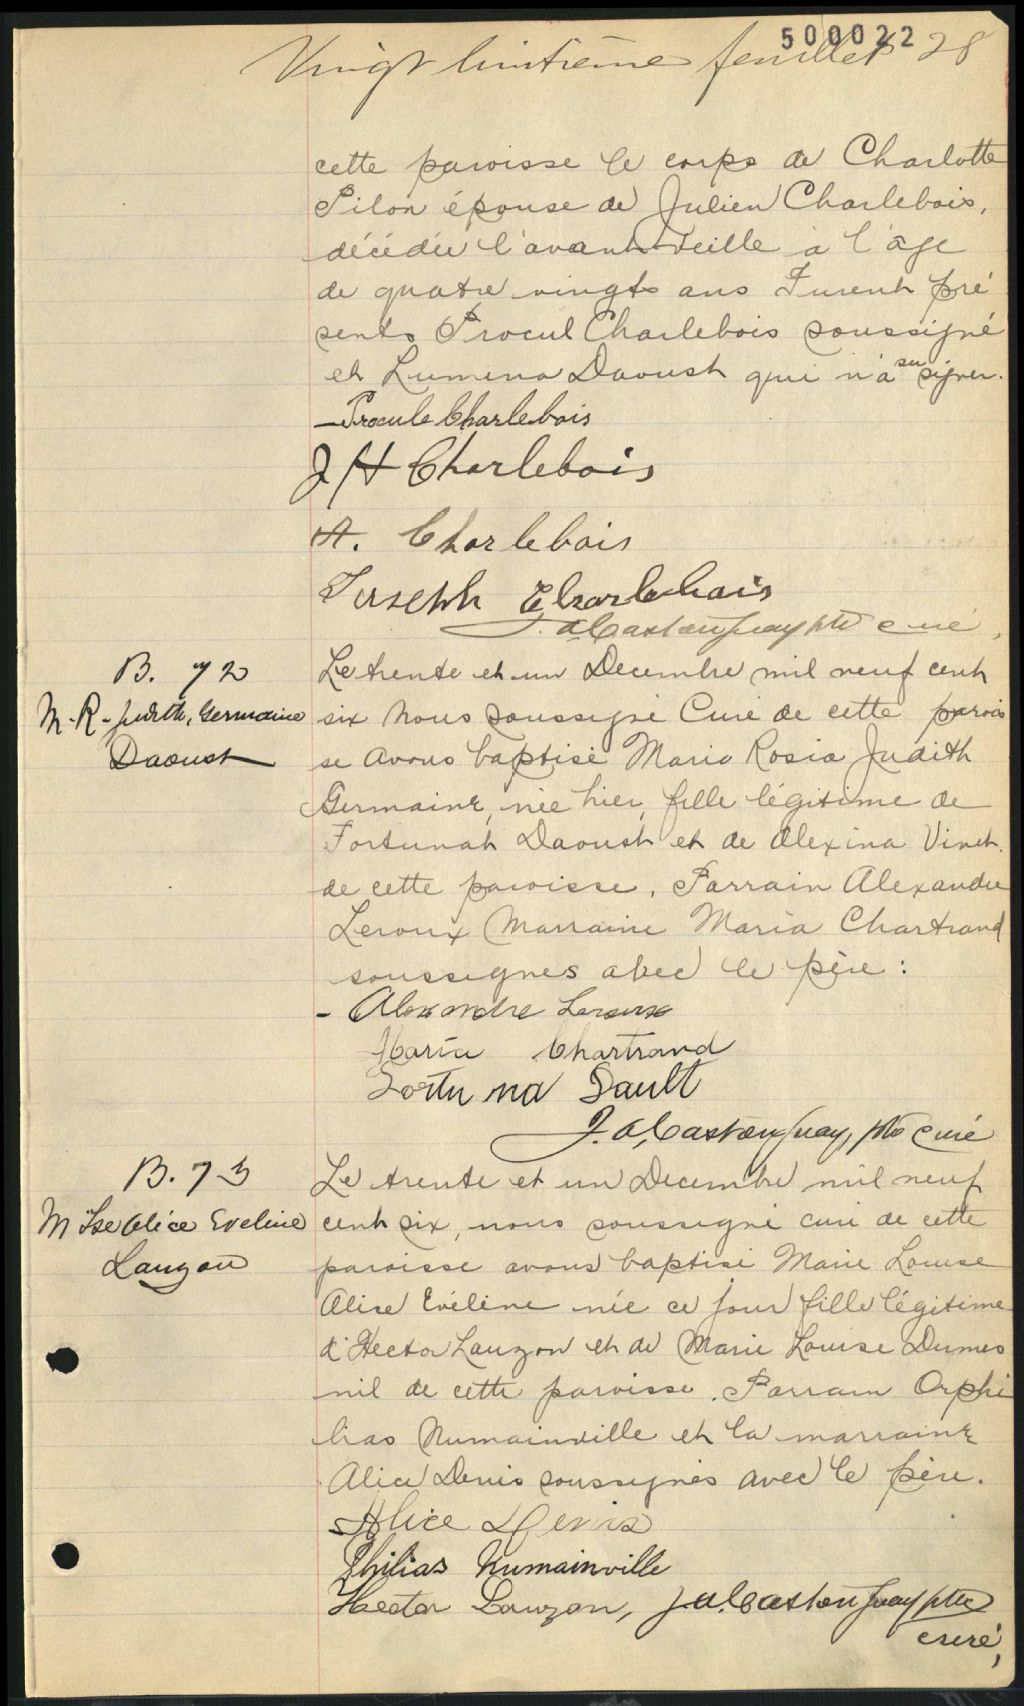 500022
Vingt huitième feuillet 28
cette paroisse le corps de Charlotte
Pilon épouse de Julien Charlebois,
décédée l'avant veille à l'âge
de quatre vingts ans Furent pré
sents Procul Charlebois soussigné
et Lumina Daoust qui n'a su signer.
Procule Charlebois
J H Charlebois
A. Charlebois
Joseph Charlebois
J. A. Castonguay ptre curé,
B. 72
M.-R.-Judith, Germaine
Daoust
Le trente et un Decembre mil neuf cent
six Nous soussigné Curé de cette parois
se Avons baptisé Marie Rosia Judith
Germaine, née hier, fille légitime de
Fortunat Daoust et de Alexina Vinet.
de cette paroisse. Parrain Alexandre
Leroux Marraine Maria Chartrand
soussignés avec le père :
- Alexandre Leroux
Maria Chartrand
Fortuna Dault
J. A. Castonguay, ptre curé
B. 73
M Lse Alice Eveline
Lauzon
Le trente et un Decembre mil neuf
cent six, nous soussigné curé de cette
paroisse avons baptisé Marie Louise
Alice Evéline née ce jour fille légitime
d'Hector Lauzon et de Marie Louise Dumes
nil de cette paroisse. Parrain Orphi
lias Numainville et la marraine
Alice Denis soussignés avec le père.
Alice Denis
Philias Numainville
Hector Lauzon, J. A. Castonguay ptre
curé,